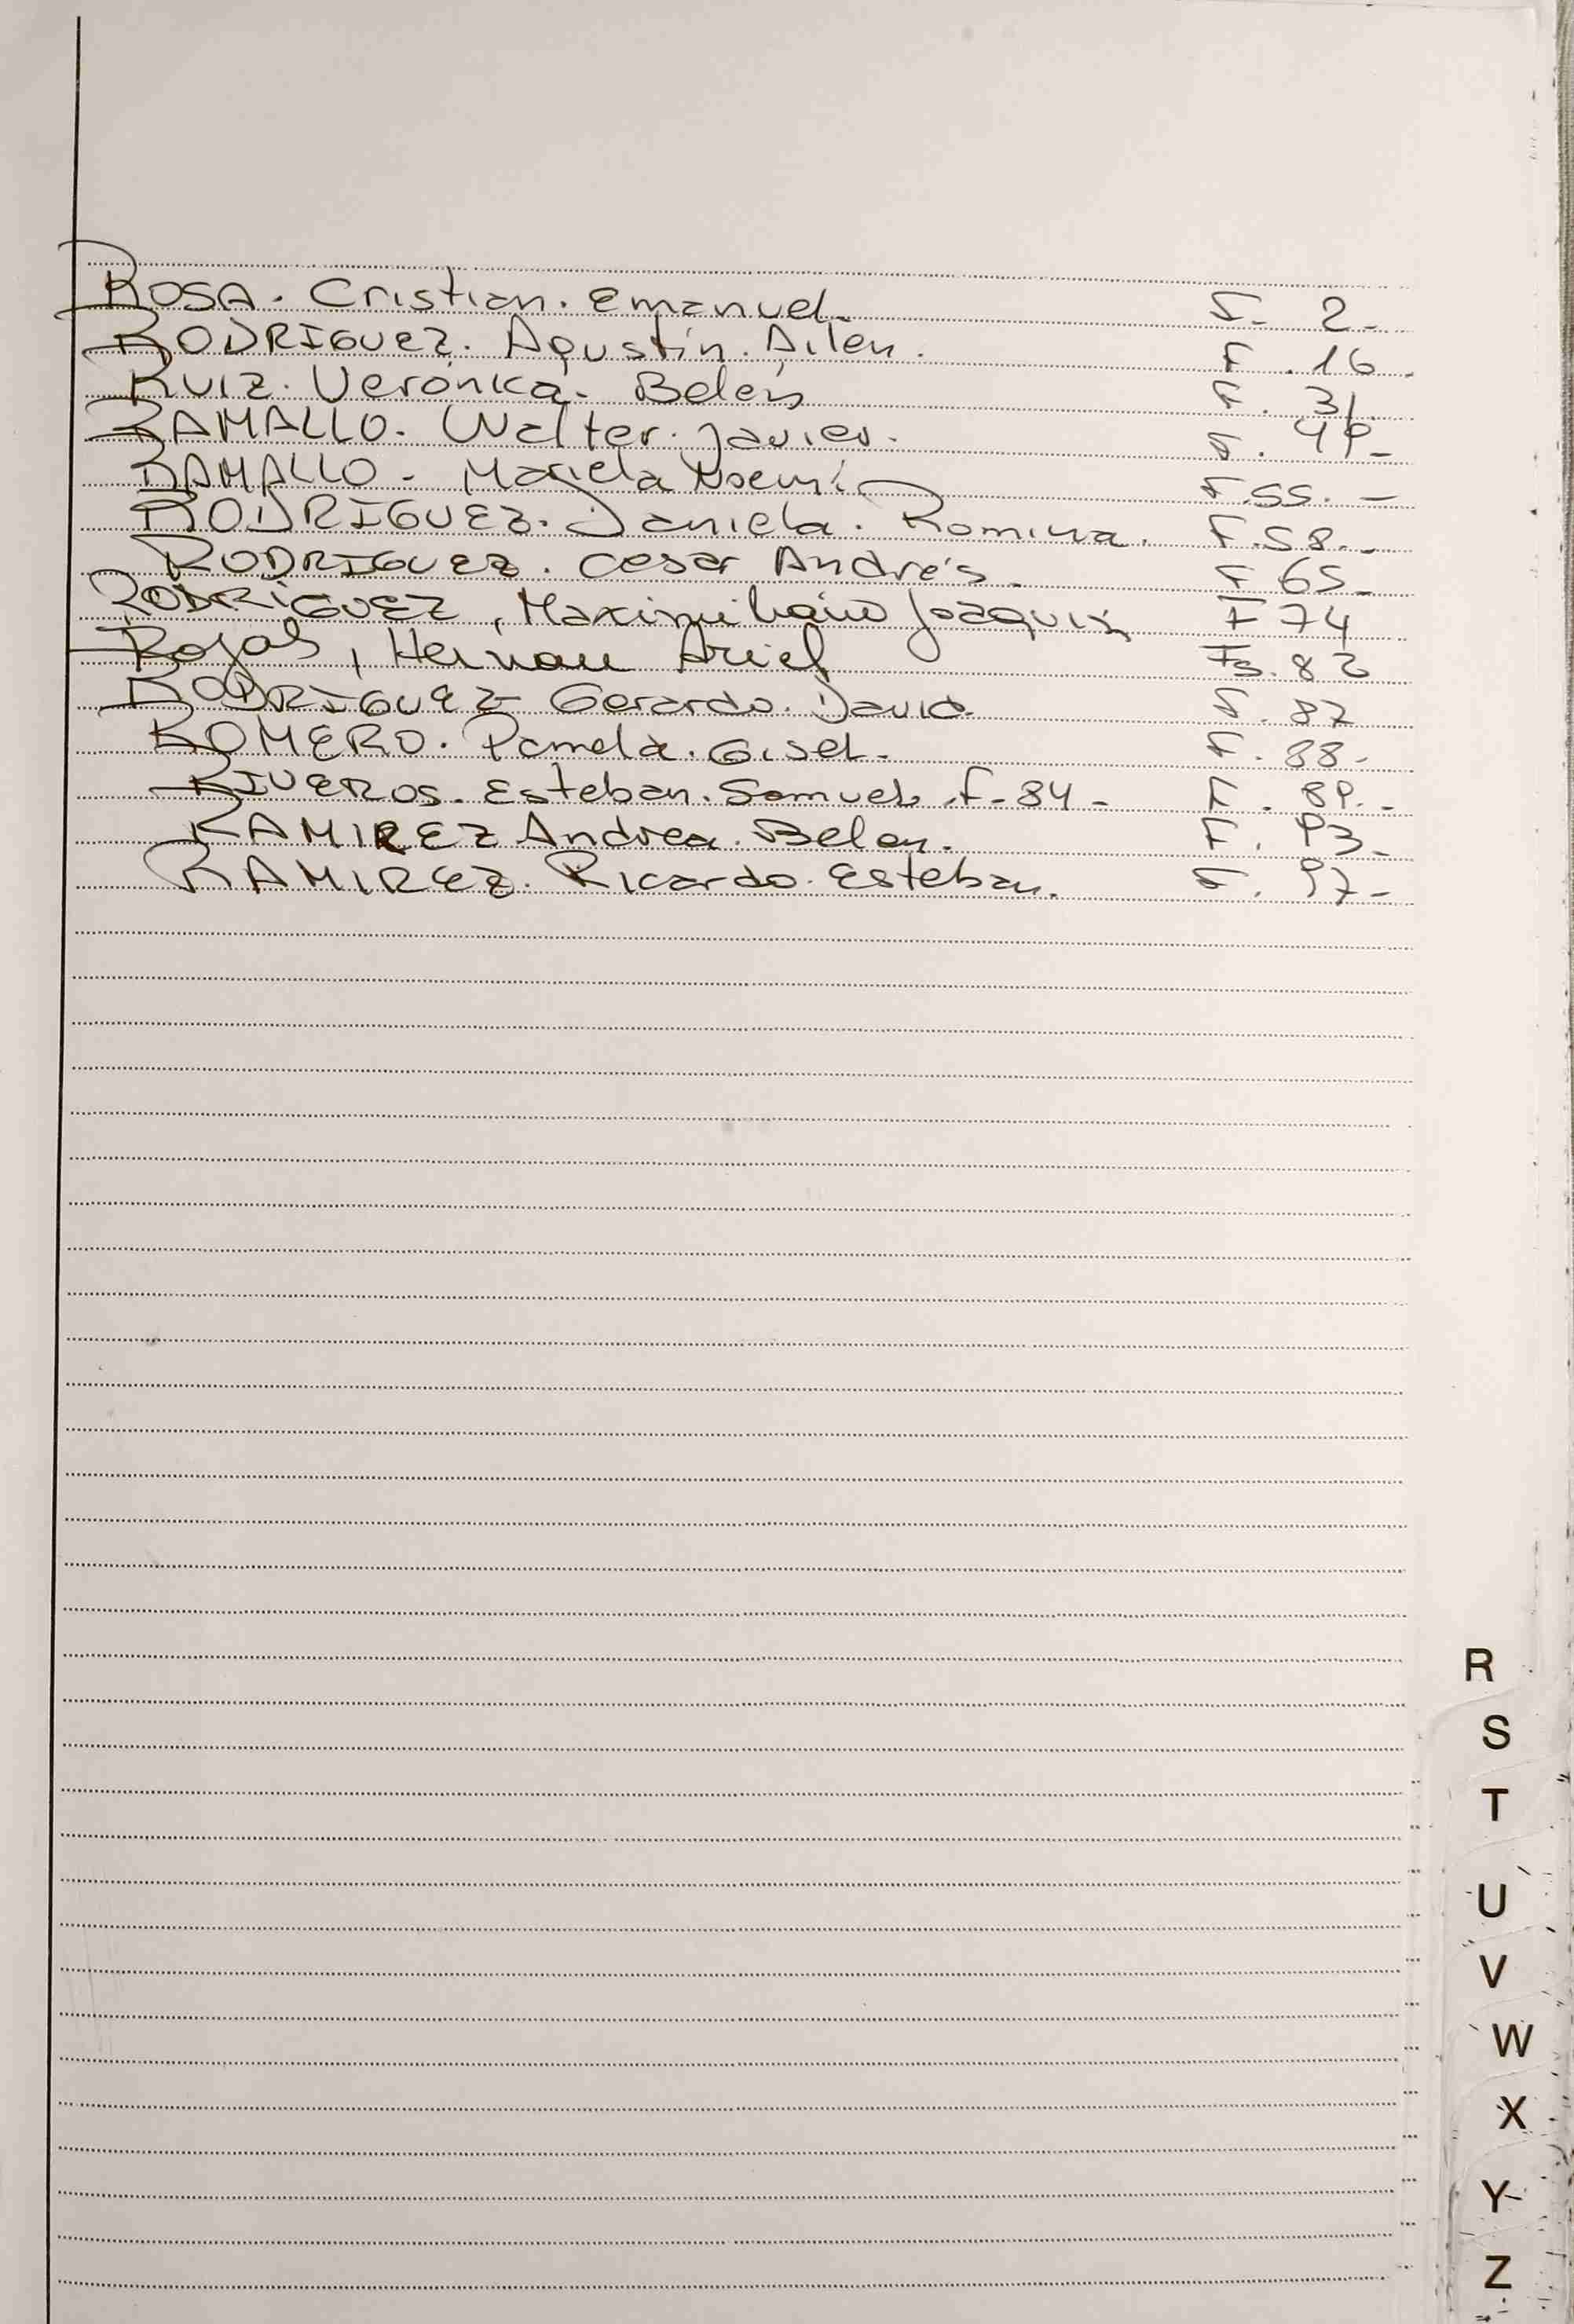 ROSA. Cristian. Emanuel. F. 2.
RODRIGUEZ. Agustín. Ailén. F. 16.
RUIZ. Verónica. Belén F. 31.
RAMALLO. Walter. Javier. F. 49-
RAMALLO - Mariela Noemí F. 55. -
RODRIGUEZ. Daniela. Romina. F. 58.-
RODRIGUEZ. Cesar Andrés. F 65-
RODRIGUEZ, Maximiliano Joaquin F 74
Rojas, Hernan Ariel Fs. 82
RODRIGUEZ Gerardo. David F. 87
ROMERO. Pamela. Gisel. F. 88-
RIVEROS. Esteban. Samuel. F-84- F. 89.-
RAMIREZ Andrea. Belen. F. 93-
RAMIREZ. Ricardo. Esteban. F. 97-
R
S
T
U
V
W
X
Y
Z